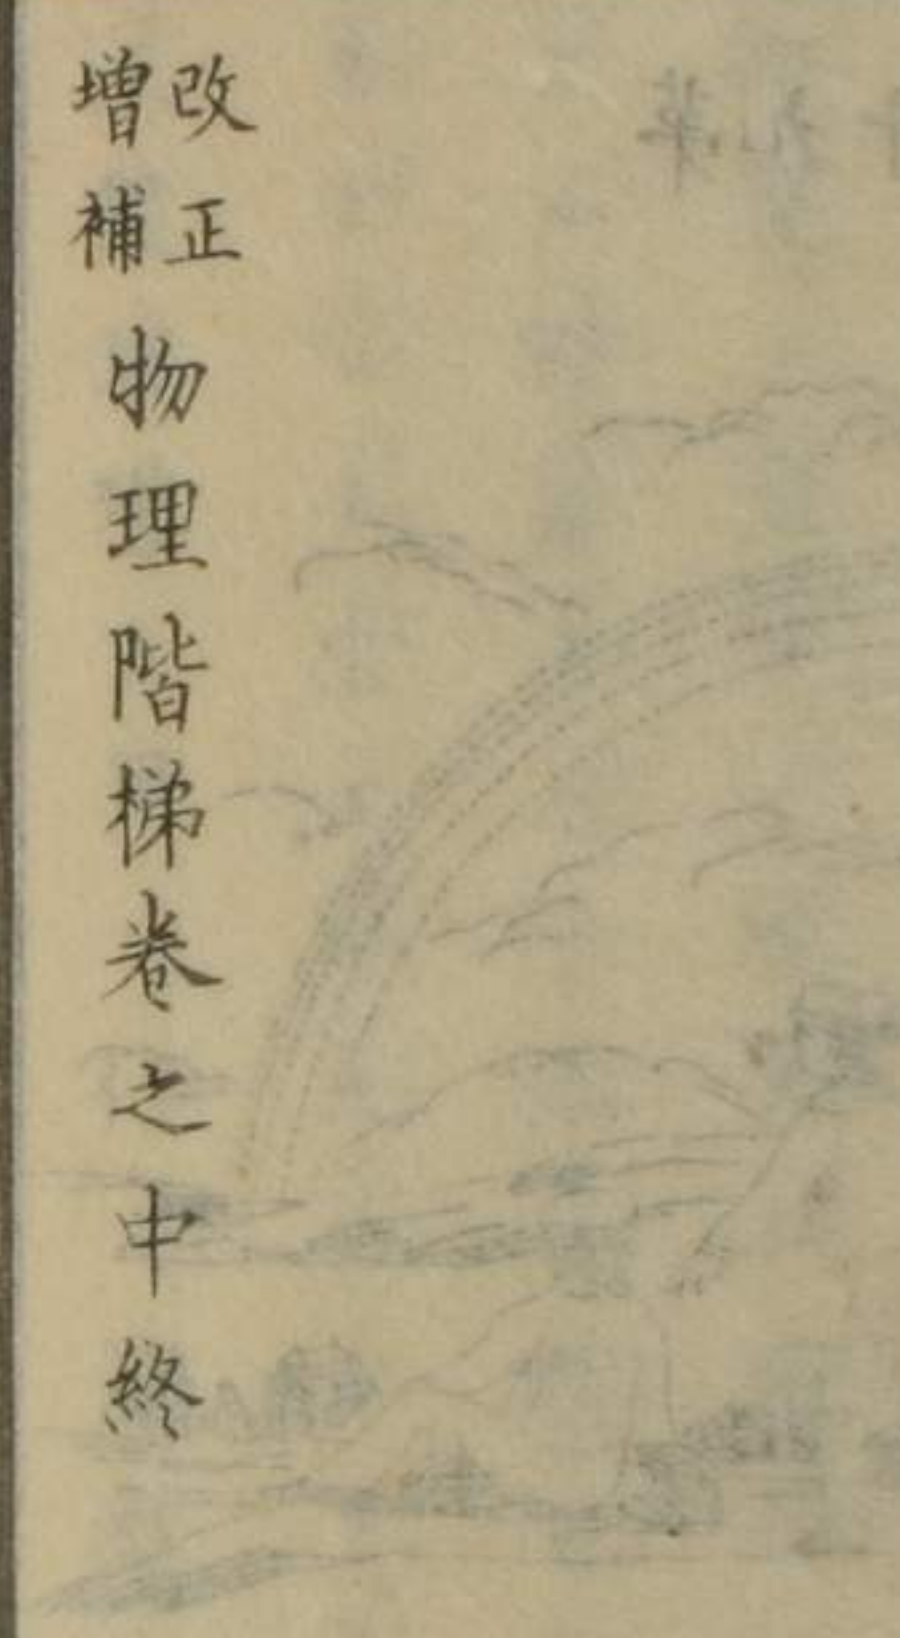 改正
增補
物理階梯卷之中終